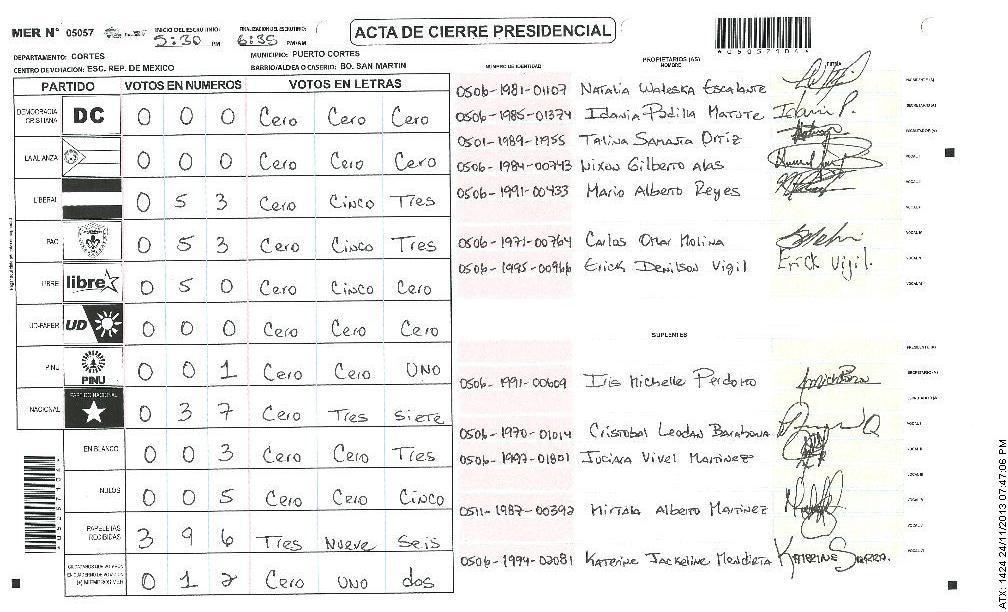 MER Nº 05057 INICIO DEL ESCRUTINIO: 5:30 PM FINALIZACION DEL ESCRUTINIO: 6:35 PM/AM ACTA DE CIERRE PRESIDENCIAL
DEPARTAMENTO: CORTES MUNICIPIO: PUERTO CORTES
CENTRO DE VOTACION: ESC. REP. DE MEXICO BARRIO/ALDEA O CASERIO: BO. SAN MARTIN
PARTIDO VOTOS EN NUMEROS VOTOS EN LETRAS
DEMOCRACIA CRISTIANA DC 0 0 0 Cero Cero Cero
LA ALIANZA 0 0 0 Cero Cero Cero
LIBERAL 0 5 3 Cero Cinco Tres
PAC 0 5 3 Cero Cinco Tres
LIBRE libre 0 5 0 Cero Cinco Cero
UD-FAPER UD 0 0 0 Cero Cero Cero
PINU PINU 0 0 1 Cero Cero UNO
NACIONAL PARTIDO NACIONAL 0 3 7 Cero Tres Siete
EN BLANCO 0 0 3 Cero Cero Tres
NULOS 0 0 5 Cero Cero Cinco
PAPELETAS RECIBIDAS 3 9 6 Tres Nueve Seis
0 1 2 Cero UNO dos
NUMERO DE IDENTIDAD PROPIETARIOS (AS) NOMBRE FIRMA
0506-1981-01107 Natalia Waleska Escalante
0506-1985-01374 Idania Padilla Matute Idania P.
0501-1989-11955 Talina Samanta Ortiz
0506-1984-00743 Nixon Gilberto Alas
0506-1991-00433 Mario Alberto Reyes
0506-1971-00764 Carlos Omar Molina
0506-1995-00966 Erick Denilson Vigil Erick Vigil.
SUPLENTES
0506-1991-00609 Iris Michelle Perdomo
0506-1970-01014 Cristobal Leodan Barahona
0506-1997-01801 Juciara Vivel Martinez
0511-1987-00392 Mirtala Alberto Martinez
0506-1994-02081 Katerine Jackeline Mendieta Katerine Sierra.
ATX: 1424 24/11/2013 07:47:06 PM